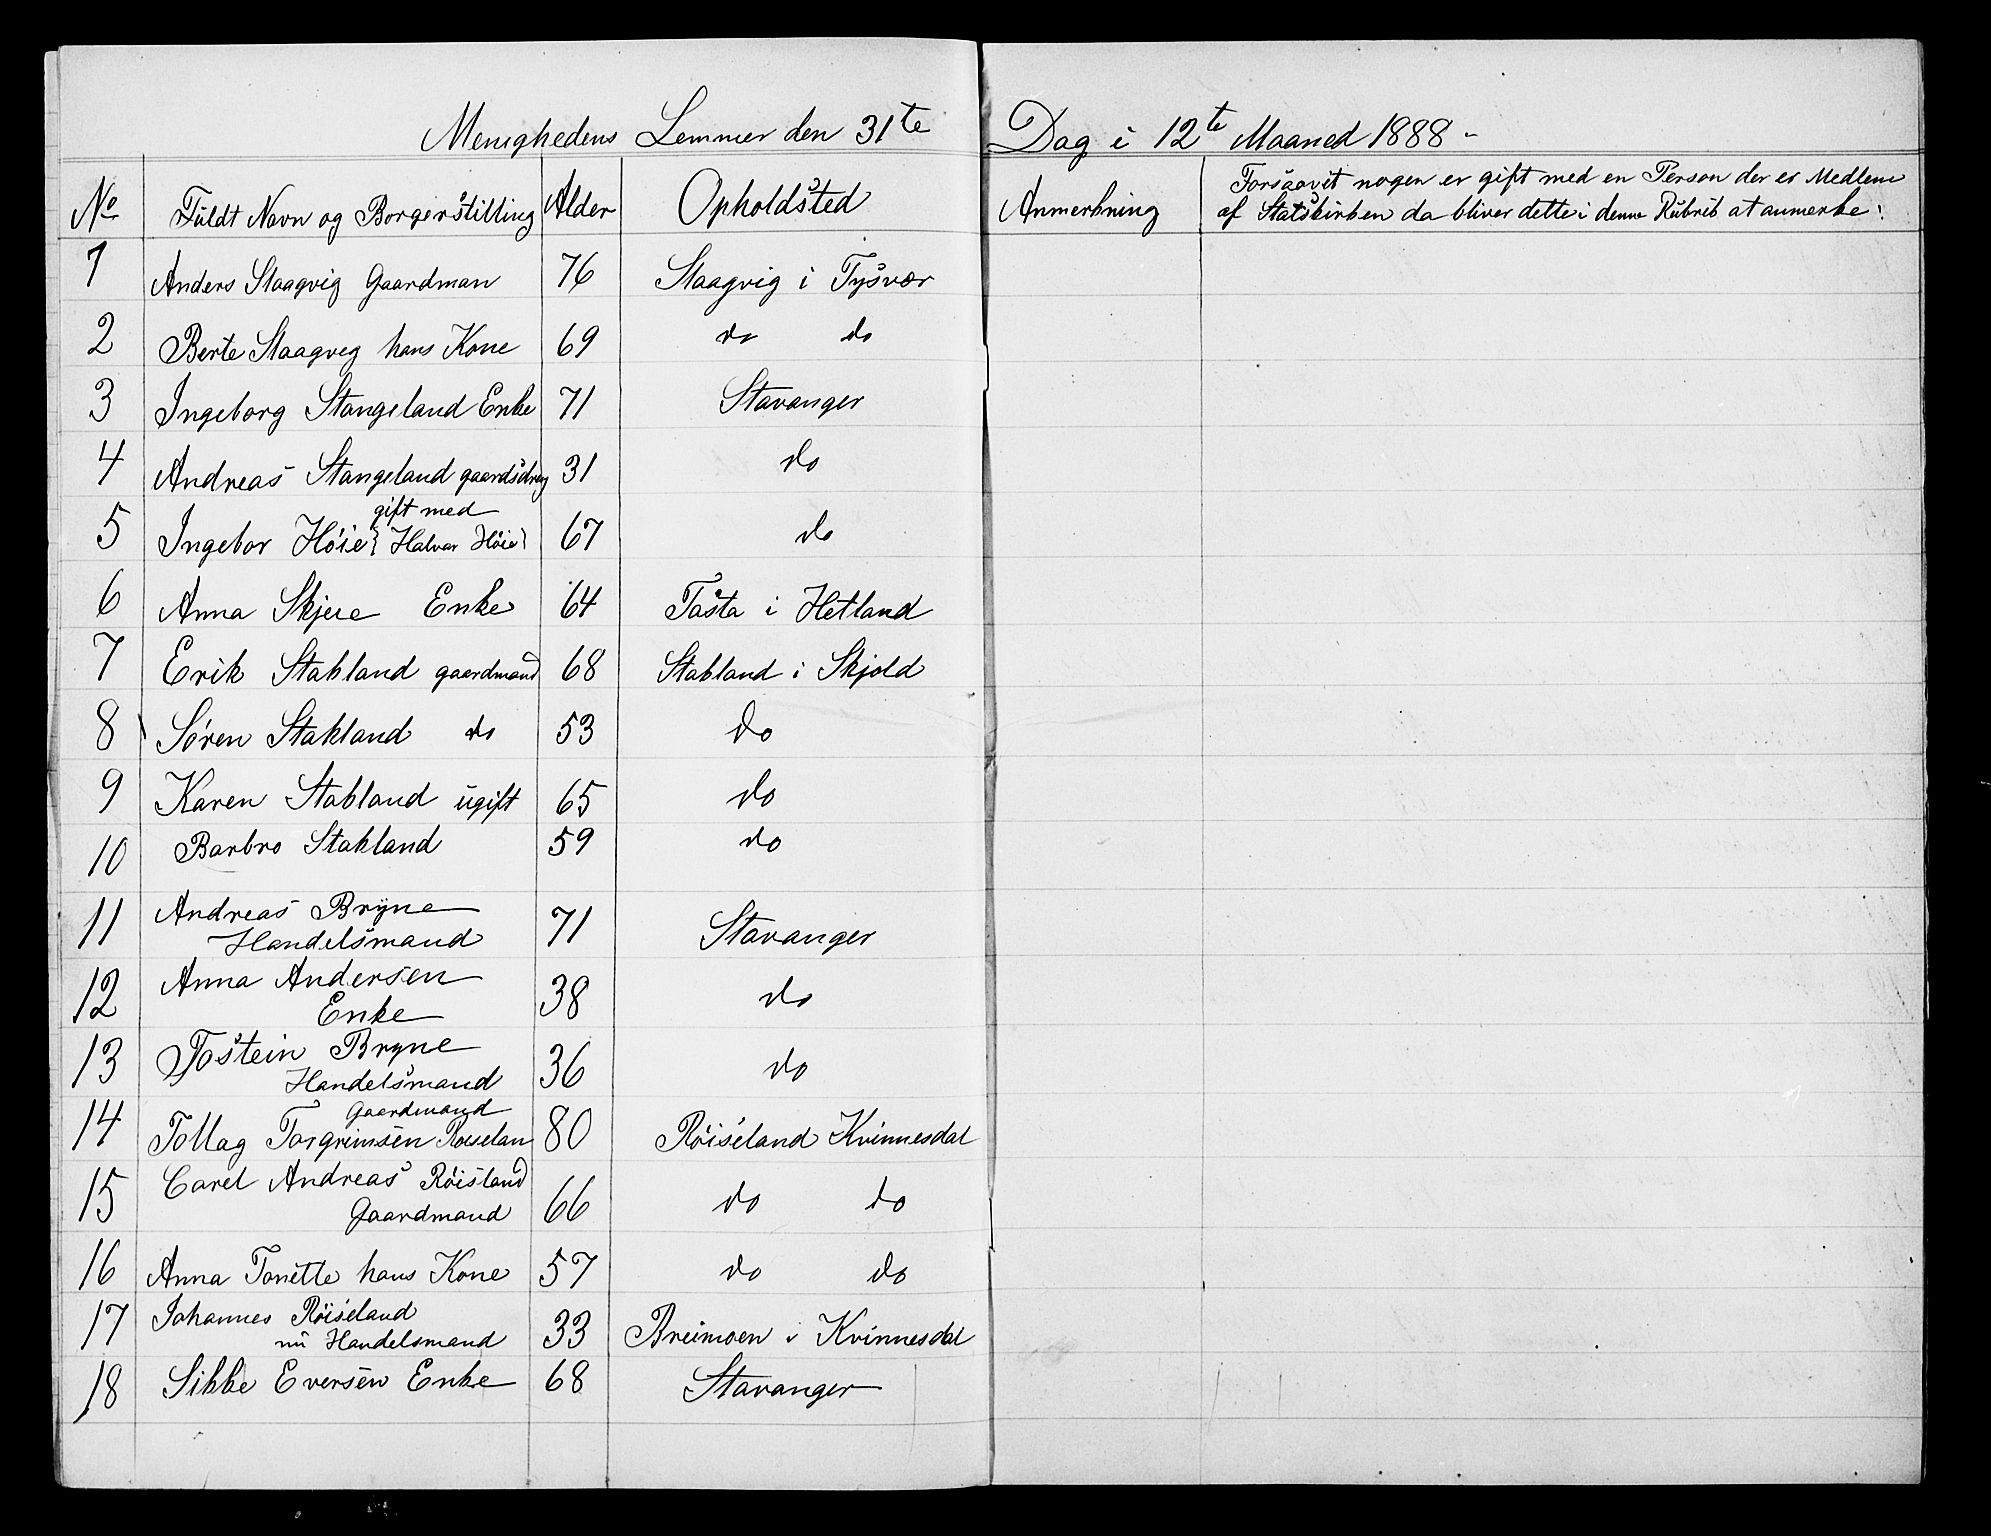 Menighedens Lemmer den 31te Dag i 12te Maaned 1888 -
No Fuldt Navn og Borgerstilling Alder Opholdsted Anmerkning Forsaavit nogen er gift med en Person der er Medlem
af Statskirken da bliver dette i denne Rubrik at anmerke.
1 Anders Staagvig Gaardman 76 Staagvig i Tysvær
2 Berte Staagveg hans Kone 69 do do
3 Ingeborg Stangeland Enke 71 Stavanger
4 Andreas Stangeland gaardsdreng 31 do
gift med
5 Ingebor Höie { Halvar Höie } 67 do
6 Anna Skjue Enke 64 Tasta i Hetland
7 Erik Stakland gaardmand 68 Stakland i Skjold
8 Sören Stakland do 53 do
9 Karen Stakland ugift 65 do
10 Barbro Stakland 59 do
11 Andreas Bryne 71 Stavanger
Handelsmand
12 Anna Andersen 38 do
Enke
13 Tostein Bryne 36 do
Handelsmand
Gaardmand
14 Tollag Torgrimsen Roiselan 80 Röiseland Kvinnesdal
15 Carel Andreas Röisland 66 do do
Gaardmand
16 Anna Tonette hans Kone 57 do do
17 Johannes Röiseland 33 Breimoen i Kvinnesdal
nu Handelsmand
18 Sikke Eversen Enke 68 Stavanger